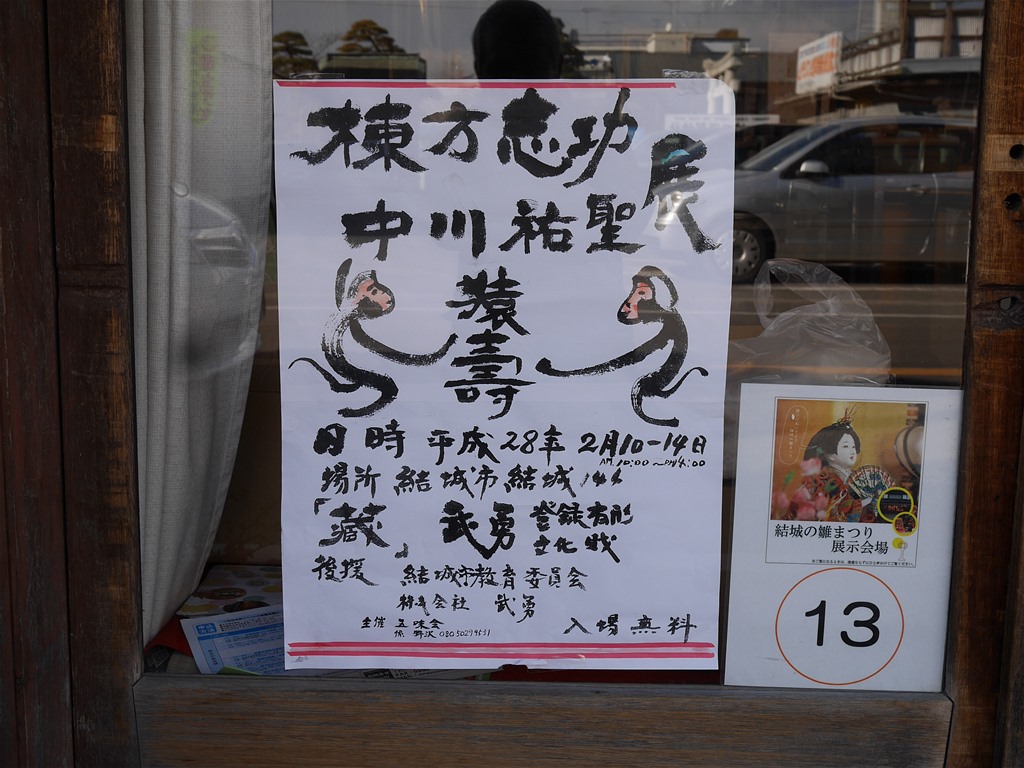 棟方志功
中川祐聖
展
猿
壽
日時 平成28年 2月10-14日
AM.10:00~PM4:00
場所 結城市結城
「蔵」 武勇 登録有形
文化
後援 結城市教育委員会
株式会社 武勇
主催 五味会
入場無料
結城の雛まつり
展示会場
13